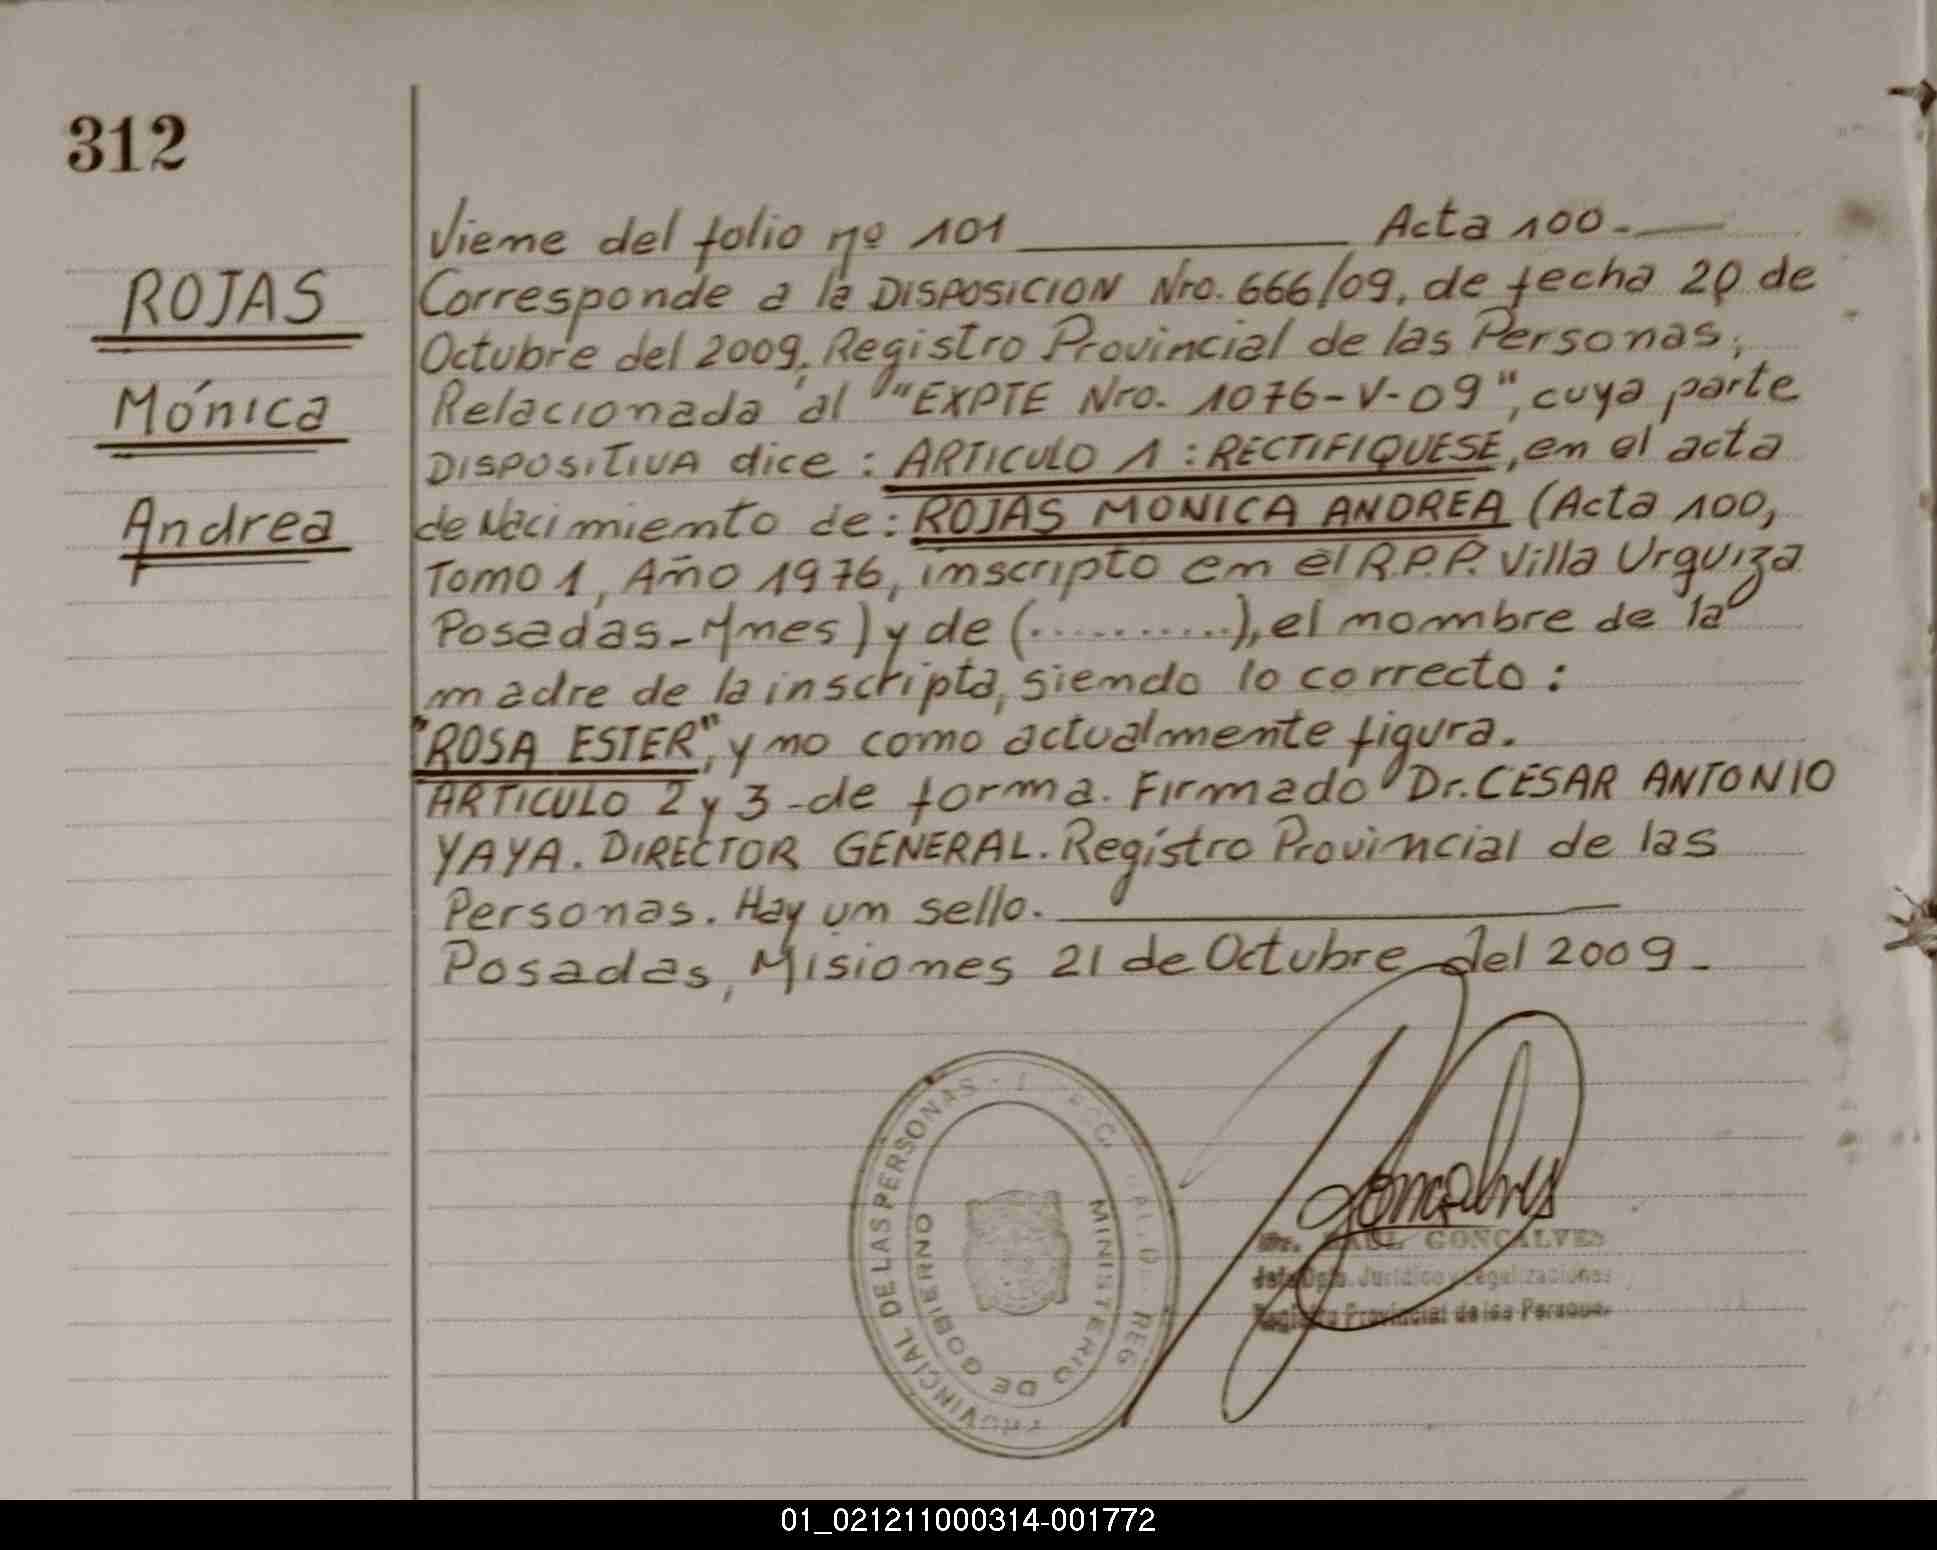 312
ROJAS
Mónica
Andrea
Viene del folio nº 101 Acta 100.-
Corresponde a la DISPOSICION Nro. 666/09, de fecha 20 de
Octubre del 2009, Registro Provincial de las Personas,
Relacionada al "EXPTE Nro. 1076-V-09", cuya parte
DISPOSITIVA dice: ARTICULO 1: RECTIFIQUESE, en el acta
de Nacimiento de: ROJAS MONICA ANDREA (Acta 100,
Tomo 1, Año 1976, inscripto en el R.P.P. Villa Urquiza
Posadas-Mnes) y de (...........), el nombre de la
madre de la inscripta, siendo lo correcto:
"ROSA ESTER", y no como actualmente figura.
ARTICULO 2 y 3-de forma. Firmado Dr. CESAR ANTONIO
YAYA. DIRECTOR GENERAL. Registro Provincial de las
Personas. Hay un sello.
Posadas, Misiones 21 de Octubre del 2009-
PROVINCIAL DE LAS PERSONAS
MINISTERIO DE GOBIERNO
Goncalves
RAUL GONCALVES
Jefe Dpto. Jurídico y Legalizaciones
Registro Provincial de las Personas
01_021211000314-001772